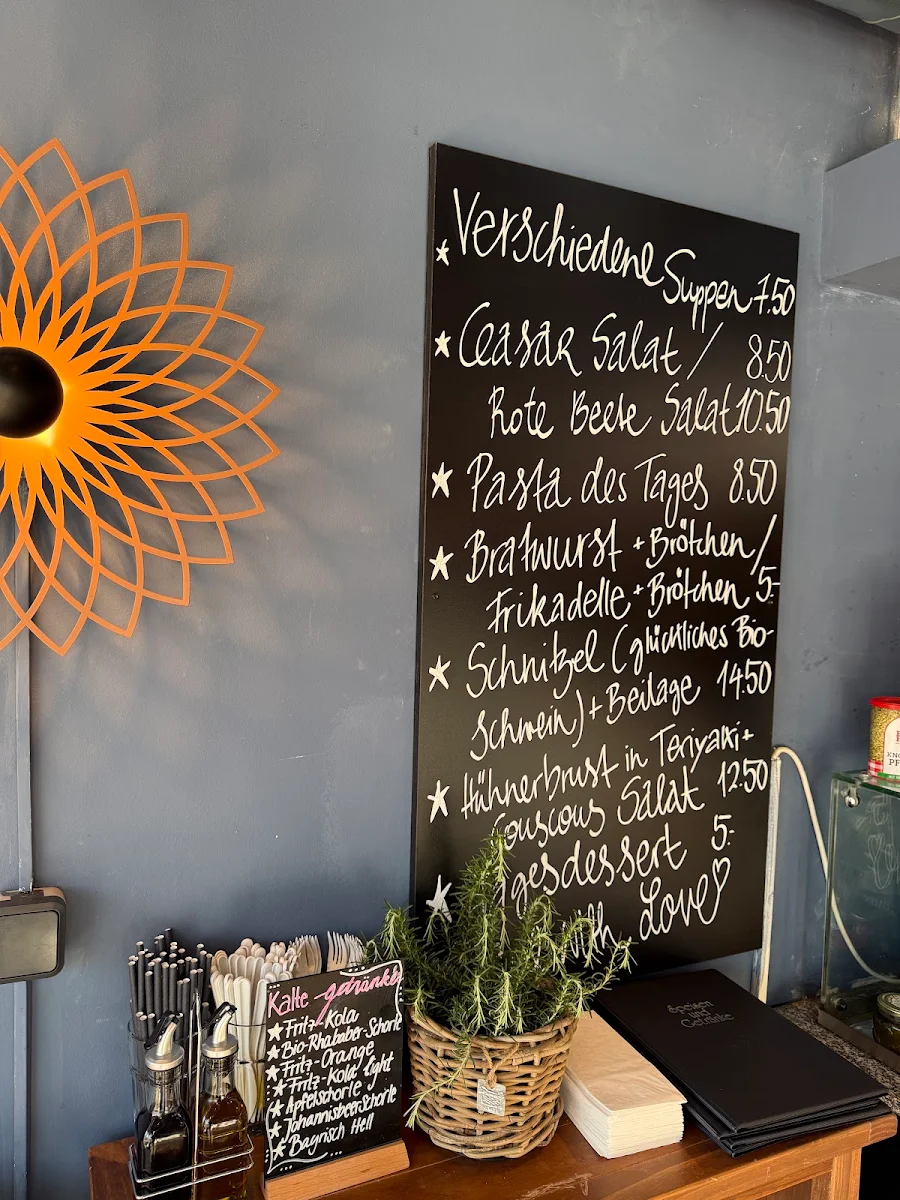 Verschiedene Suppen 7.50
Ceasar Salat / 8.50
Rote Beete Salat 10.50
Pasta des Tages 8.50
Bratwurst + Brötchen /
Frikadelle + Brötchen 5.-
Schnitzel (glückliches Bio-
Schwein) + Beilage 14.50
Hühnerbrust in Teriyaki +
Couscous Salat 12.50
gesdessert 5.-
with Love
Kalte getränke
Fritz-Kola
Bio-Rhababer-Schorle
Fritz-Orange
Fritz-Kola light
Apfelschorle
Johannisbeerschorle
Bayrisch Hell
Speisen
und
Getränke